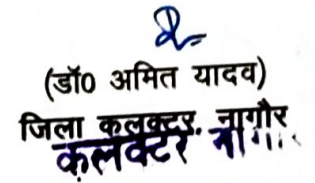 (डॉ0 अमित यादव)
जिला कलक्टर, नागौर
कलक्टर